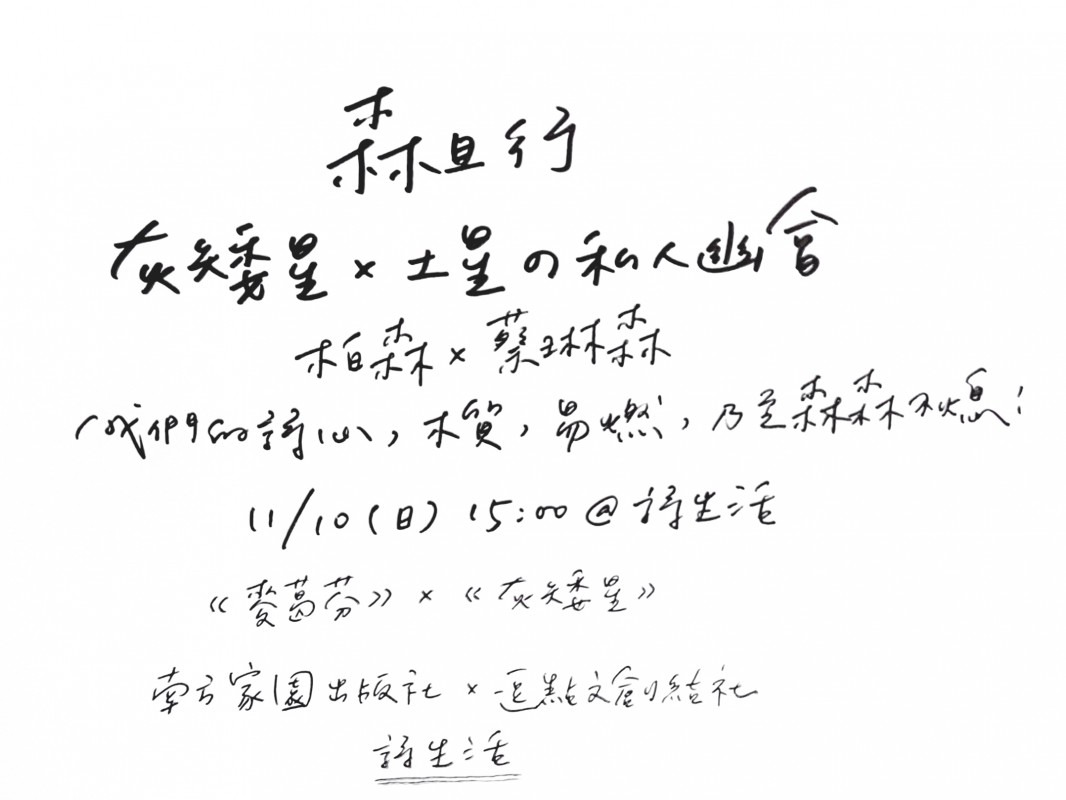 森且行
灰矮星×土星の私人幽會
柏森×蔡琳森
我們的詩心,木質,易燃,乃至森森不熄!
11/10(日) 15:00 @ 詩生活
《麥葛芬》×《灰矮星》
南方家園出版社 × 逗點文創結社
詩生活